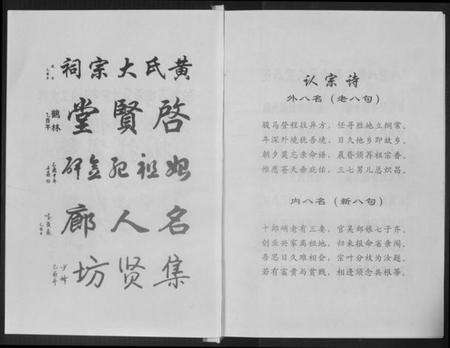 黄氏大宗祠
啓賢堂
鶴林
始祖纪念碑
名人廊
集贤坊
认宗诗
外八名(老八句)
骏马登程往异方,任寻胜地立纲常。
年深外境犹吾境,日久他乡即故乡。
朝夕莫忘亲命语,晨昏须荐祖宗香。
惟愿苍天垂庇佑,三七男儿总炽昌。
内八名(新八句)
十郎峭老有三妻,官吴郑娘七子齐,
创业兴家离祖地,归来报命省亲闱。
吾思日久难相会,宗叶分枝为汝题,
若有富贵与贫贱,相逢须念共根蒂。